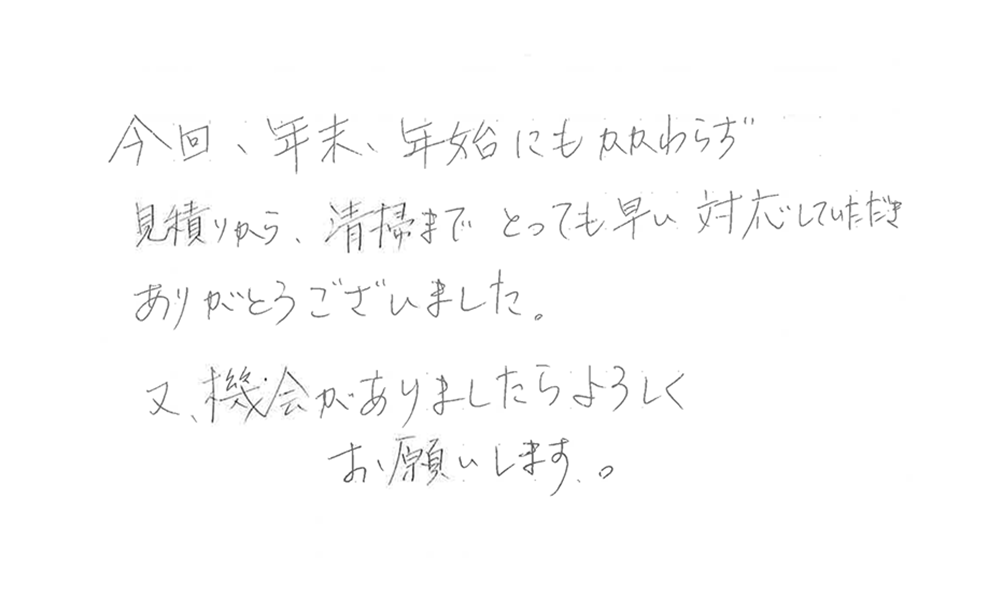 今回、年末、年始にもかかわらず
見積りから、清掃まで とっても早い 対応していただき
ありがとうございました。
又、機会がありましたらよろしく
お願いします。